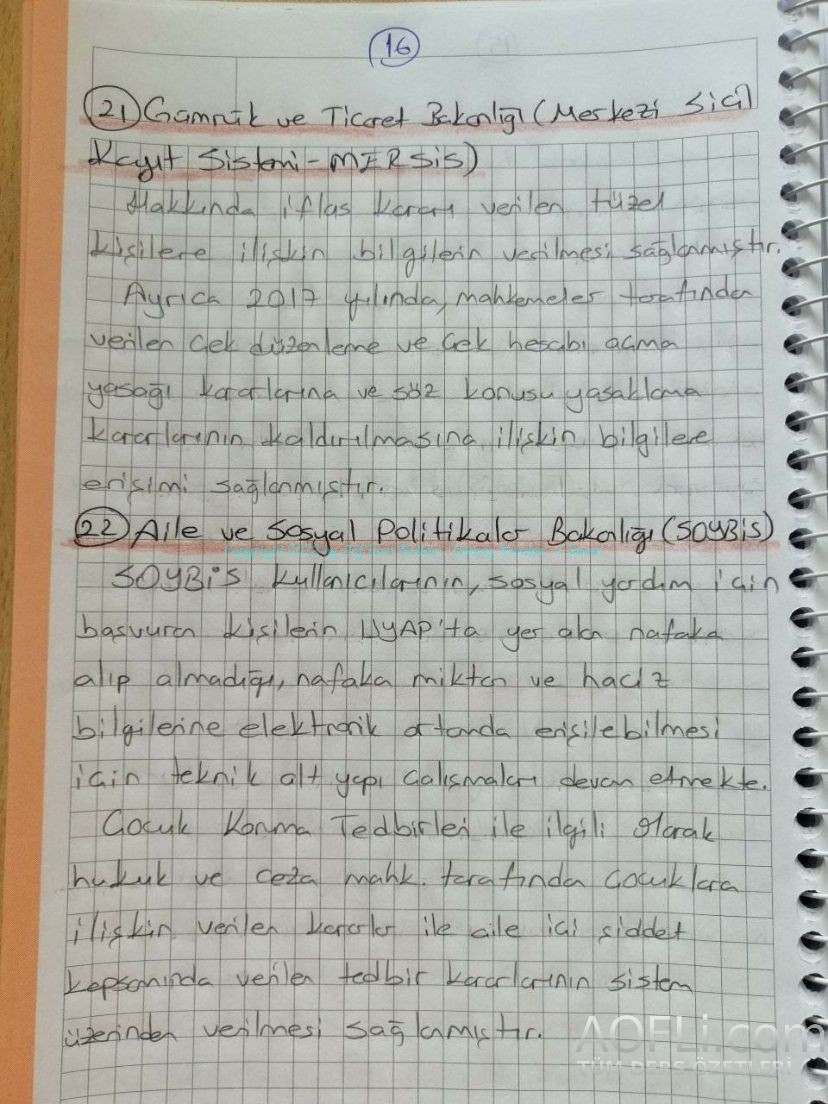 16
21) Gümrük ve Ticaret Bakanlığı (Merkezi Sicil
Kayıt Sistemi - MERSİS)
Hakkında iflas kararı verilen tüzel
kişilere ilişkin bilgilerin verilmesi sağlanmıştır.
Ayrıca 2017 yılında, mahkemeler tarafından
verilen çek düzenleme ve çek hesabı açma
yasağı kararlarına ve söz konusu yasaklama
kararlarının kaldırılmasına ilişkin bilgilere
erişimi sağlanmıştır.
22) Aile ve Sosyal Politikalar Bakanlığı (SOYBİS)
SOYBİS kullanıcılarının, sosyal yardım için
başvuran kişilerin UYAP'ta yer alan nafaka
alıp almadığı, nafaka miktarı ve haciz
bilgilerine elektronik ortamda erişilebilmesi
için teknik alt yapı çalışmaları devam etmekte.
Çocuk Koruma Tedbirleri ile ilgili olarak
hukuk ve ceza mahk. tarafından çocuklara
ilişkin verilen kararlar ile aile içi şiddet
kapsamında verilen tedbir kararlarının sistem
üzerinden verilmesi sağlanmıştır.
AOFLi.com
TÜM DERS ÖZETLERİ